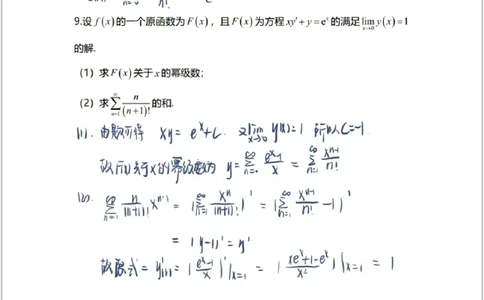 9.设 f(x)的一个原函数为F(x)，且F(x)为方程xy′+y=eˣ的满足lim_{x→0} y(x)=1
的解.
（1）求F(x)关于x的幂级数；
（2）求∑_{n=1}^{∞} n/(n+1)! 的和.
(1). 由题可得 xy = eˣ+C. 又lim_{x→0} y(x)=1 所以C=-1
故所以关于x的幂级数为 y = ∑_{n=1}^{∞} (eˣ-1)/x = ∑_{n=1}^{∞} xⁿ⁻¹/n!
(2). ∑_{n=1}^{∞} n/(n+1)! xⁿ⁻¹ = (∑_{n=1}^{∞} xⁿ/(n+1)!)′ = (∑_{n=1}^{∞} xⁿ⁻¹/n! -1)′
= (y-1)′ = y′
故原式= y′(1) = ((eˣ-1)/x)′|ₓ₌₁ = (xeˣ+1-eˣ)/x² |ₓ₌₁ = 1